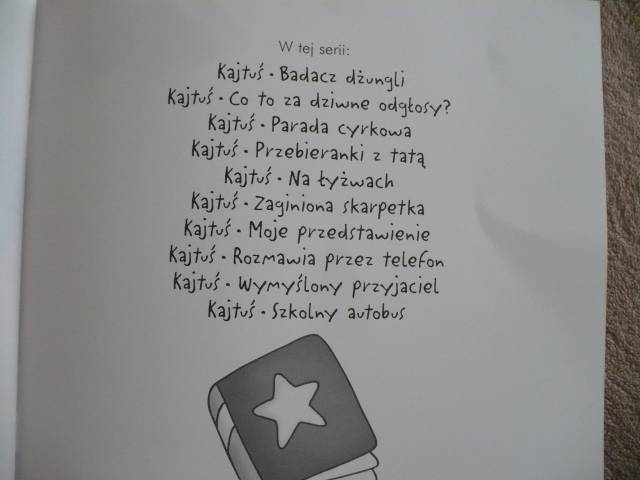 W tej serii:
Kajtuś • Badacz dżungli
Kajtuś • Co to za dziwne odgłosy?
Kajtuś • Parada cyrkowa
Kajtuś • Przebieranki z tatą
Kajtuś • Na łyżwach
Kajtuś • Zaginiona skarpetka
Kajtuś • Moje przedstawienie
Kajtuś • Rozmawia przez telefon
Kajtuś • Wymyślony przyjaciel
Kajtuś • Szkolny autobus